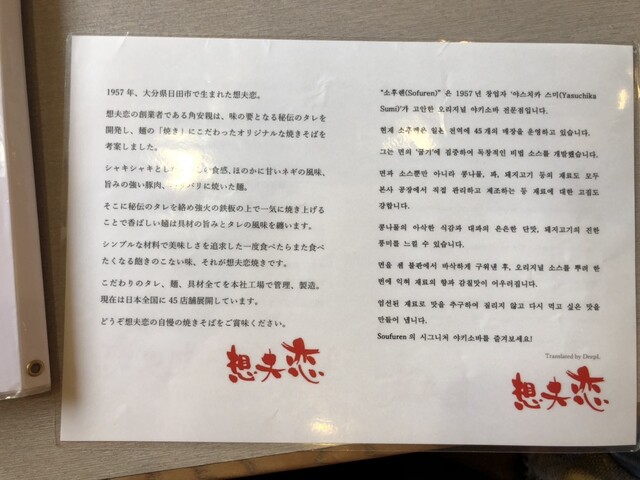 1957 年、大分県日田市で生まれた想夫恋。
想夫恋の創業者である角安親は、味の要となる秘伝のタレを
開発し、麺の「焼き」にこだわったオリジナルな焼きそばを
考案しました。
シャキシャキとした い食感、ほのかに甘いネギの風味、
旨みの強い豚肉、 パリに焼いた麺。
そこに秘伝のタレを絡め強火の鉄板の上で一気に焼き上げる
ことで香ばしい麺は具材の旨みとタレの風味を纏います。
シンプルな材料で美味しさを追求した一度食べたらまた食べ
たくなる飽きのこない味、それが想夫恋焼きです。
こだわりのタレ、麺、具材全てを本社工場で管理、製造。
現在は日本全国に 45 店舗展開しています。
どうぞ想夫恋の自慢の焼きそばをご賞味ください。
想夫恋
"소후렌(Sofuren)" 은 1957 년 창업자 '야스치카 스미(Yasuchika
Sumi)'가 고안한 오리지널 야키소바 전문점입니다.
현재 소후렌은 일본 전역에 45 개의 매장을 운영하고 있습니다.
그는 면의 '굽기'에 집중하여 독창적인 비법 소스를 개발했습니다.
면과 소스뿐만 아니라 콩나물, 파, 돼지고기 등의 재료도 모두
본사 공장에서 직접 관리하고 제조하는 등 재료에 대한 고집도
강합니다.
콩나물의 아삭한 식감과 대파의 은은한 단맛, 돼지고기의 진한
풍미를 느낄 수 있습니다.
면을 센 불판에서 바삭하게 구워낸 후, 오리지널 소스를 뿌려 한
번에 익혀 재료의 향과 감칠맛이 어우러집니다.
엄선된 재료로 맛을 추구하여 질리지 않고 다시 먹고 싶은 맛을
만들어 냅니다.
Soufuren 의 시그니처 야키소바를 즐겨보세요!
Translated by DeepL
想夫恋